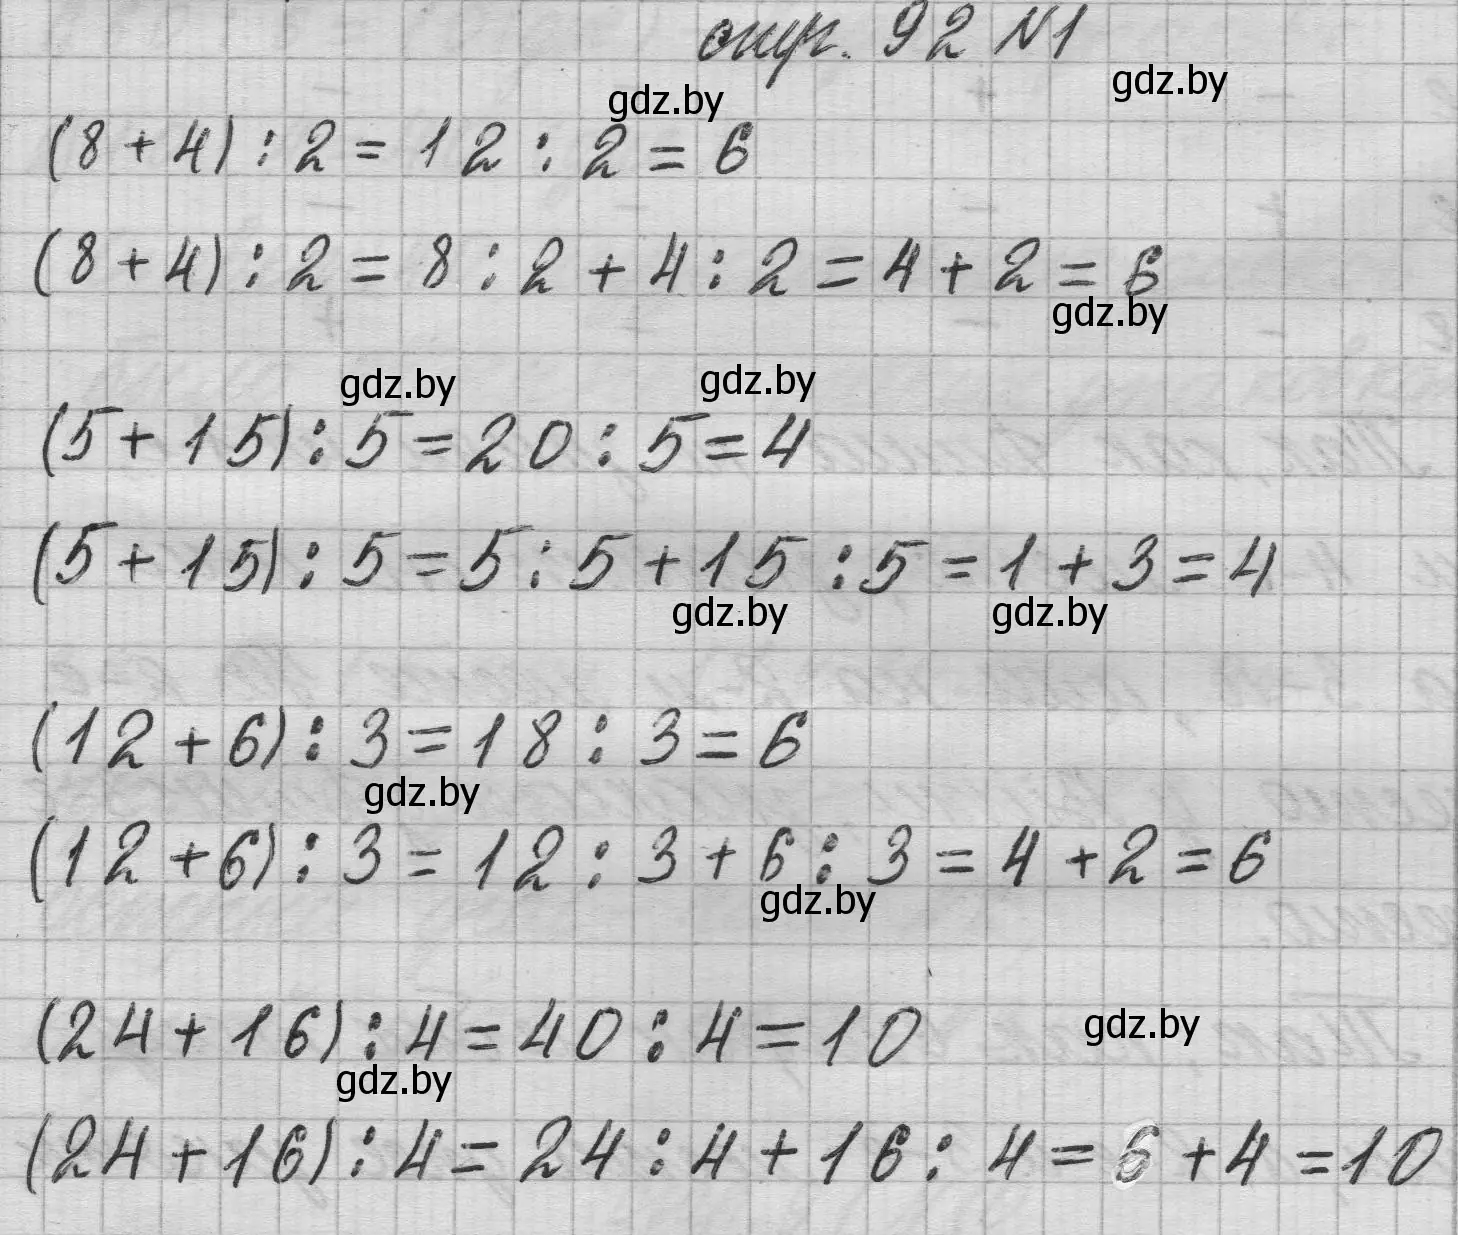 стр. 92 №1
gdz.by
gdz.by
(8 + 4) : 2 = 12 : 2 = 6
(8 + 4) : 2 = 8 : 2 + 4 : 2 = 4 + 2 = 6
gdz.by
gdz.by
gdz.by
(5 + 15) : 5 = 20 : 5 = 4
(5 + 15) : 5 = 5 : 5 + 15 : 5 = 1 + 3 = 4
gdz.by
gdz.by
(12 + 6) : 3 = 18 : 3 = 6
gdz.by
(12 + 6) : 3 = 12 : 3 + 6 : 3 = 4 + 2 = 6
gdz.by
(24 + 16) : 4 = 40 : 4 = 10
gdz.by
gdz.by
(24 + 16) : 4 = 24 : 4 + 16 : 4 = 6 + 4 = 10